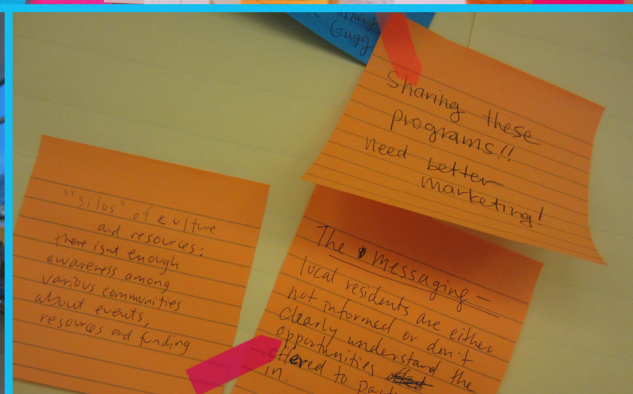 Gugg
Sharing these
programs!!
need better
marketing!
"Silos" of culture
and resources:
there isn't enough
awareness among
various communities
about events,
resources and funding
The Messaging -
local residents are either
not informed or don't
clearly understand the
opportunities
offered to
in.